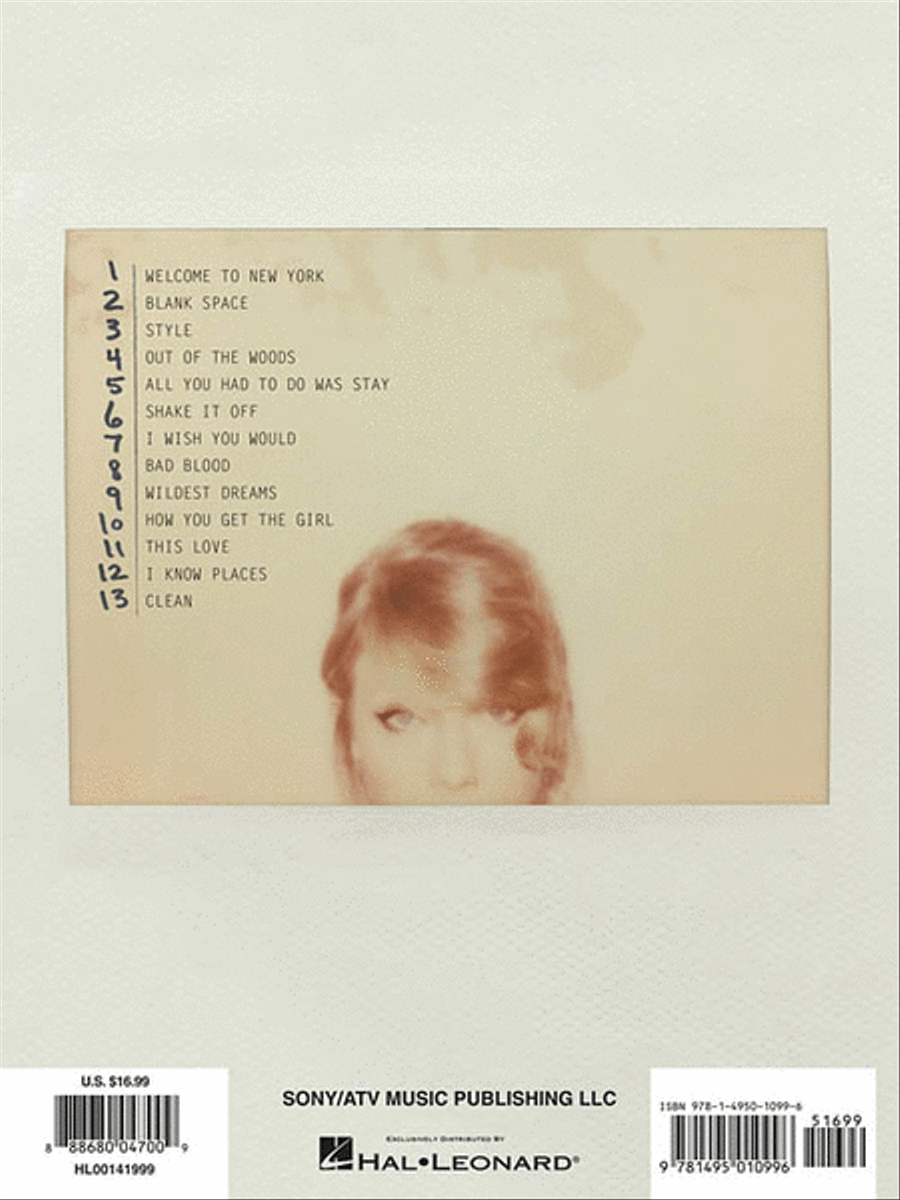 1 WELCOME TO NEW YORK
2 BLANK SPACE
3 STYLE
4 OUT OF THE WOODS
5 ALL YOU HAD TO DO WAS STAY
6 SHAKE IT OFF
7 I WISH YOU WOULD
8 BAD BLOOD
9 WILDEST DREAMS
10 HOW YOU GET THE GIRL
11 THIS LOVE
12 I KNOW PLACES
13 CLEAN
U.S. $16.99
8 88680 04700 9
HL00141999
SONY/ATV MUSIC PUBLISHING LLC
EXCLUSIVELY DISTRIBUTED BY
HAL•LEONARD®
ISBN 978-1-4950-1099-6
51699
9 781495 010996